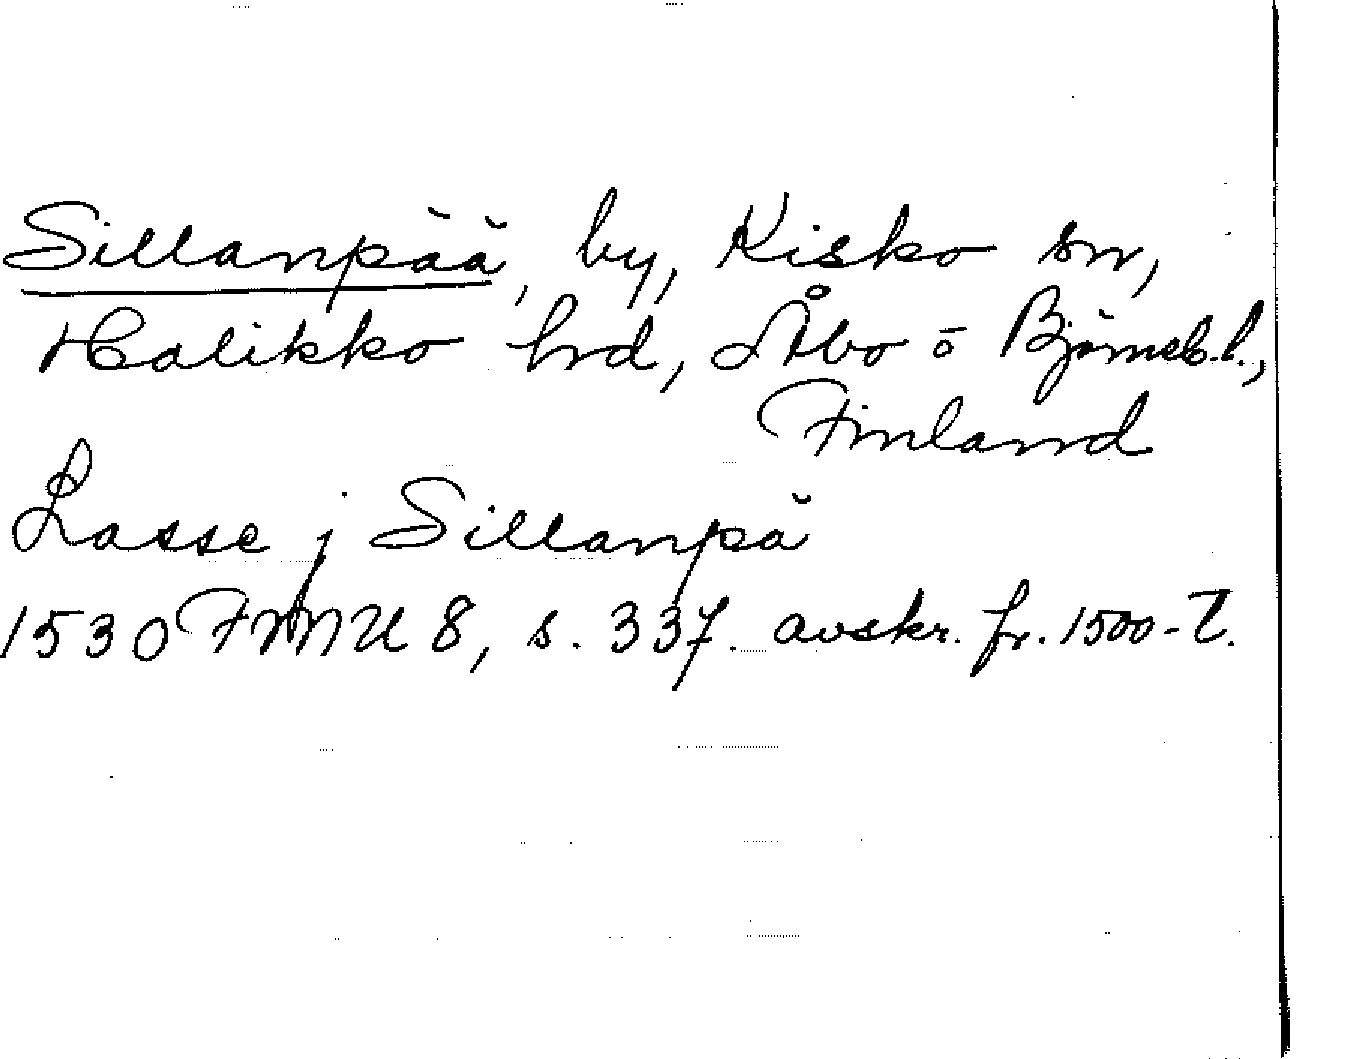 Sillanpää, by, Kisko sn,
Halikko hrd, Åbo o Björneb.l.,
Finland
Lasse j Sillanpä
1530 FMU 8, s. 337. avskr. fr. 1500-t.